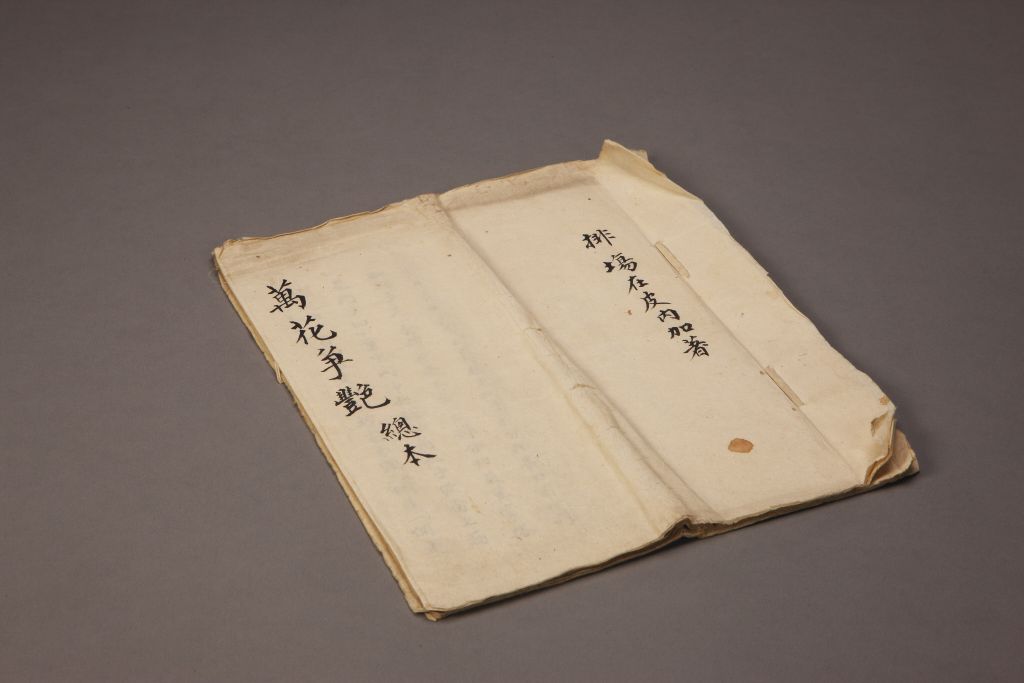 排塲在皮內加著
萬花爭艷總本